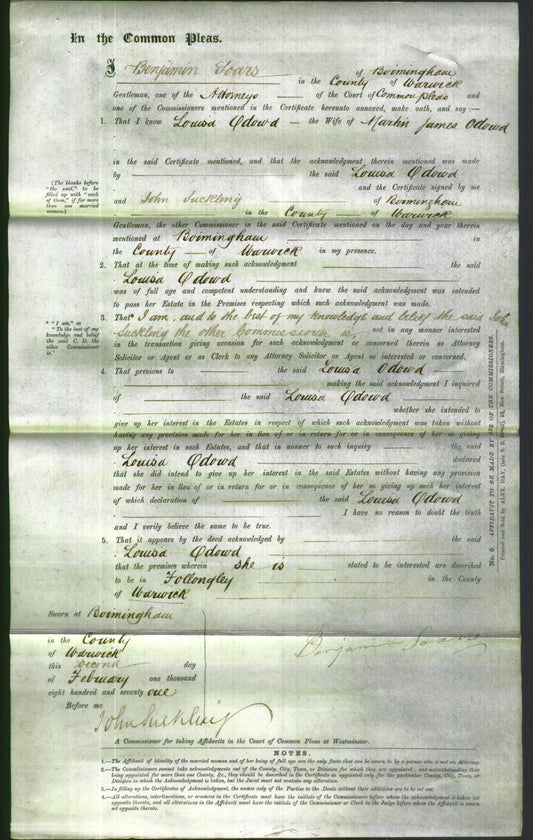 In the Common Pleas.
I Benjamin Soars of Birmingham
in the County of Warwick
Gentleman, one of the Attorneys of the Court of Common pleas and
one of the Commissioners mentioned in the Certificate hereunto annexed, make oath, and say :—
1. That I know Louisa Odowd — the Wife of Martin James Odowd
in the said Certificate mentioned, and that the acknowledgment therein mentioned was made
by the said Louisa Odowd
and the Certificate signed by me
and John Suckling of Birmingham
in the County of Warwick
Gentleman, the other Commissioner in the said Certificate mentioned on the day and year therein
mentioned at Birmingham in
the County of Warwick in my presence.
2. That at the time of making such acknowledgment the said
Louisa Odowd
was of full age and competent understanding and knew the said acknowledgment was intended
to pass her Estate in the Premises respecting which such acknowledgment was made.
3. That I am, and to the best of my knowledge and belief the said John
Suckling the other Commissioner is not in any manner interested
in the transaction giving occasion for such acknowledgment or concerned therein as Attorney
Solicitor or Agent or as Clerk to any Attorney Solicitor or Agent so interested or concerned.
4. That previous to the said Louisa Odowd
making the said acknowledgment I inquired
of the said Louisa Odowd
whether she intended to
give up her interest in the Estates in respect of which such acknowledgment was taken without
having any provision made for her in lieu of or in return for or in consequence of her so giving
up her interest in such Estates, and that in answer to such inquiry the said
Louisa Odowd declared
that she did intend to give up her interest in the said Estates without having any provision
made for her in lieu of or in return for or in consequence of her so giving up such her interest
of which declaration of the said Louisa Odowd
I have no reason to doubt the truth
and I verily believe the same to be true.
5. That it appears by the deed acknowledged by the said
Louisa Odowd
that the premises wherein she is stated to be interested are described
to be in Follongley in the County
of Warwick
(The blanks before
"the said," to be
filled up with "each
of them," if for more
than one married
woman.)
* "I am," or
"To the best of my
knowledge and belief
the said C. D. the
other Commissioner
is."
No. 5. AFFIDAVIT TO BE MADE BY ONE OF THE COMMISSIONERS.
Printed and Sold by ALEX. DAY, New Street, Birmingham.
Sworn at Birmingham
in the County
of Warwick
this second day
of February one thousand
eight hundred and seventy one
Before me
Benjamin Soars
John Suckling
A Commissioner for taking Affidavits in the Court of Common Pleas at Westminster.
NOTES.
1.—The Affidavit of identity of the married woman and of her being of full age are the only facts that can be sworn to by a person who is not an Attorney.
2.—The Commissioners cannot take acknowledgments out of the County, City, Town, or Division for which they are appointed; and notwithstanding their
being appointed for more than one County, &c., they should be described in the Certificate as appointed only for the particular County, City, Town, or
Division in which the Acknowledgment is taken, but the Jurat must not contain any alteration.
3.—In filling up the Certificates of Acknowledgment, the names only of the Parties to the Deeds without their additions are to be set out.
4.—All alterations, interlineations, or erasures in the Certificate must have the initials of the Commissioners before whom the acknowledgment is taken set
opposite thereto, and all alterations in the Affidavit must have the initials of the Commissioner or Clerk to the Judge before whom the Affidavit is sworn
set opposite thereto.